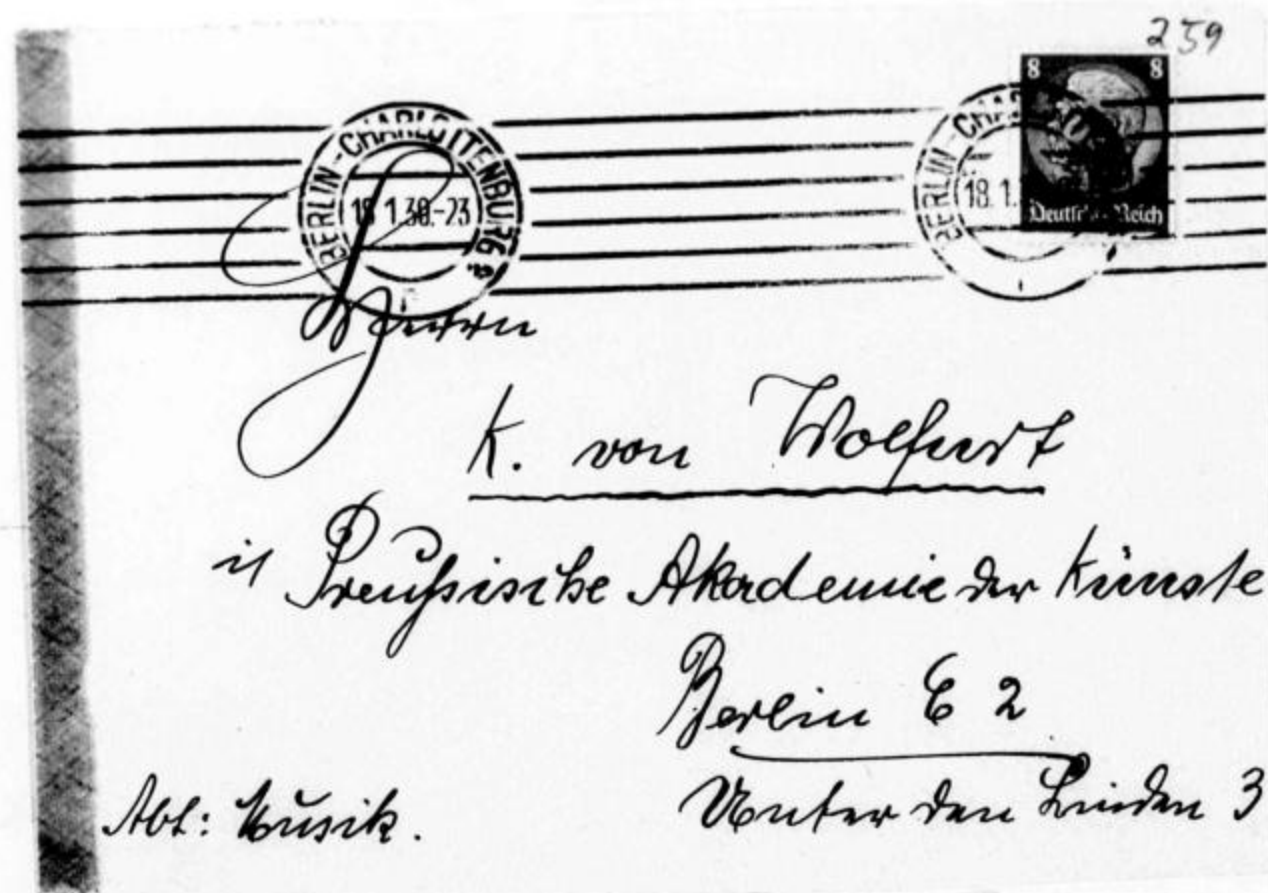 259
8 8
BERLIN-CHARLOTTENBURG
18.1.38.-23
BERLIN-CHAR
18.1.
Deutsches Reich
Herrn
K. von Wolfurt
Preußische Akademie der Künste
Berlin C 2
Unter den Linden 3
Abt: Musik.